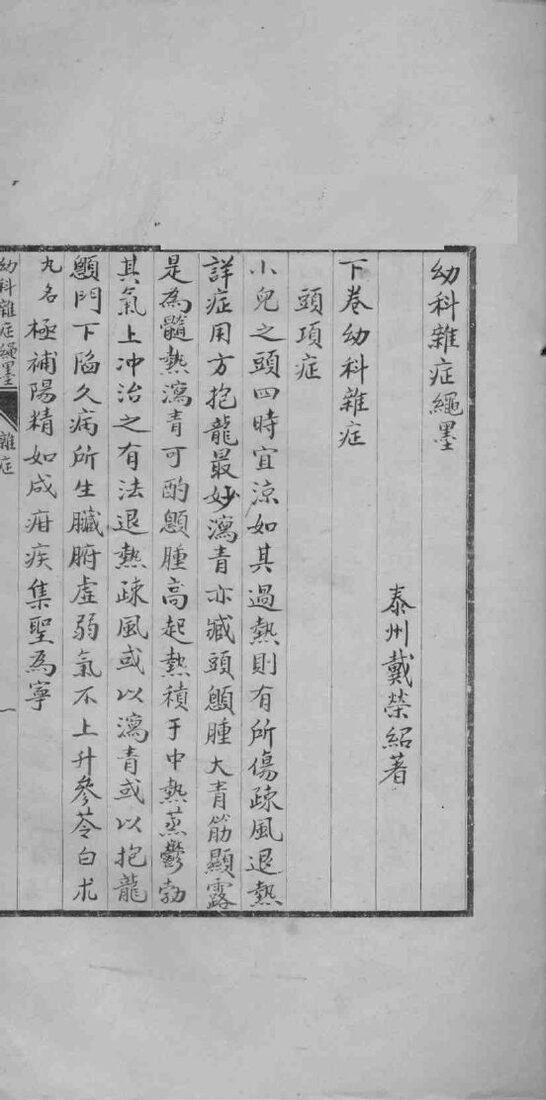 幼科雜症繩墨
泰州戴榮紹著
下卷幼科雜症
頭項症
小兒之頭四時宜涼如其過熱則有所傷疎風退熱
詳症用方抱龍最妙瀉青亦臧頭顖腫大青筋顯露
是為髓熱瀉青可酌顖腫高起熱積于中熱蒸鬱勃
其氣上冲治之有法退熱疎風或以瀉青或以抱龍
顖門下陷久病所生臟腑虛弱氣不上升參苓白朮
丸名極補陽精如成疳疾集聖為寧
幼科雜症繩墨 雜症 一